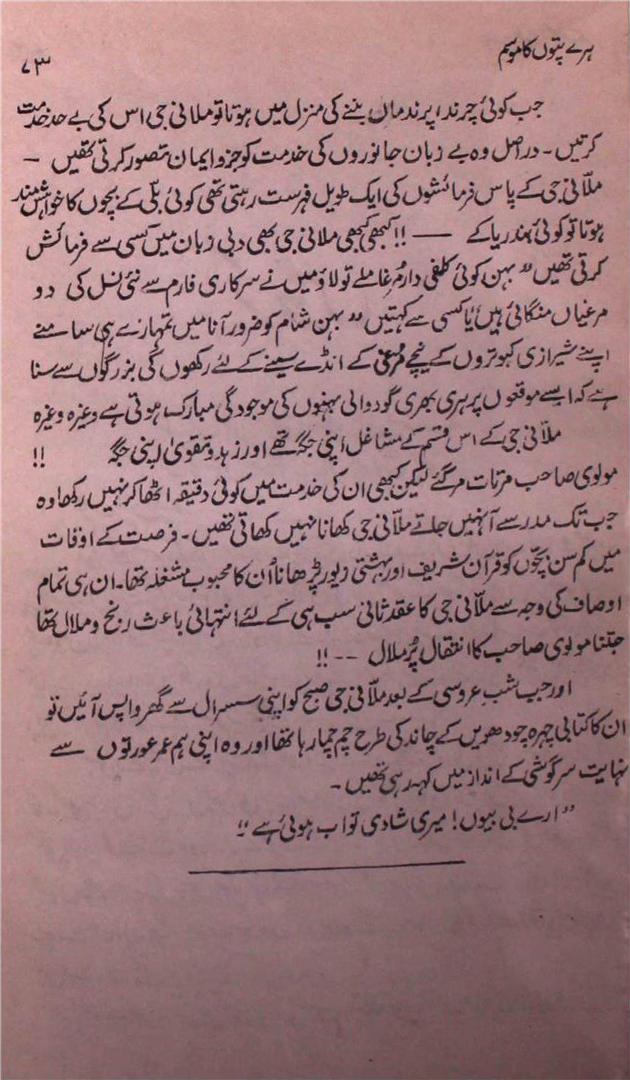 ہرے پتوں کا موسم
۷۳
جب کوئی چرند، پرند ماں بننے کی منزل میں ہوتا تو ملانی جی اس کی بے حد خدمت
کرتیں۔ دراصل وہ بے زبان جانوروں کی خدمت کو جزو ایمان تصور کرتی تھیں ۔
ملانی جی کے پاس فرمائشوں کی ایک طویل فہرست رہتی تھی کوئی بلی کے بچوں کا خواہش مند
ہوتا تو کوئی بندریا کے —— !! کبھی کبھی ملانی جی بھی دبی زبان میں کسی سے فرمائش
کرتی تھیں "بہن کوئی کلغی دار مُرغا ملے تو لاؤ میں نے سرکاری فارم سے نئی نسل کی دو
مرغیاں منگائی ہیں" یا کسی سے کہتیں "بہن شام کو ضرور آنا میں تمہارے ہی سامنے
اپنے شیرازی کبوتروں کے نیچے مُرغی کے انڈے سینے کے لئے رکھوں گی بزرگوں سے سنا
ہے کہ ایسے موقعوں پر ہری بھری گود والی بہنوں کی موجودگی مبارک ہوتی ہے وغیرہ وغیرہ
ملانی جی کے اس قسم کے مشاغل اپنی جگہ تھے اور زہد و تقویٰ اپنی جگہ !!
مولوی صاحب مرتے مر گئے لیکن کبھی ان کی خدمت میں کوئی دقیقہ اٹھا کر نہیں رکھا وہ
جب تک مدرسے آ نہیں جاتے ملانی جی کھانا نہیں کھاتی تھیں۔ فرصت کے اوقات
میں کم سن بچوں کو قرآن شریف اور بہشتی زیور پڑھانا اُن کا محبوب مشغلہ تھا۔ ان ہی تمام
اوصاف کی وجہ سے ملانی جی کا عقد ثانی سب ہی کے لئے انتہائی باعث رنج و ملال تھا
جتنا مولوی صاحب کا انتقال پُر ملال -- !!
اور جب شبِ عروسی کے بعد ملانی جی صبح کو اپنی سسرال سے گھر واپس آئیں تو
ان کا کتابی چہرہ چودھویں کے چاند کی طرح چم چما رہا تھا اور وہ اپنی ہم عمر عورتوں سے
نہایت سرگوشی کے انداز میں کہہ رہی تھیں ۔
"ارے بی بیوں! میری شادی تو اب ہوئی ہے"